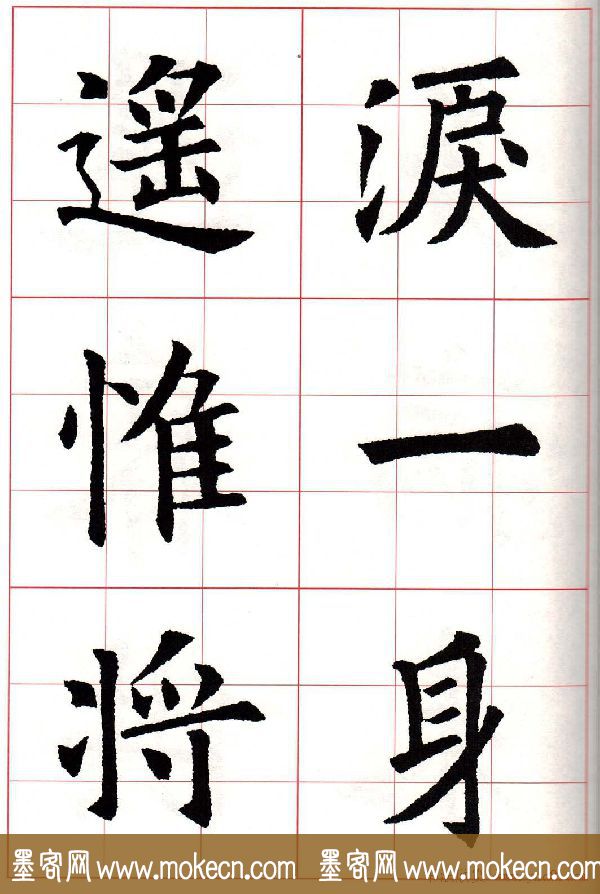 淚一身
遥惟将
墨客网 www.mokecn.com 墨客网 www.mokecn.com